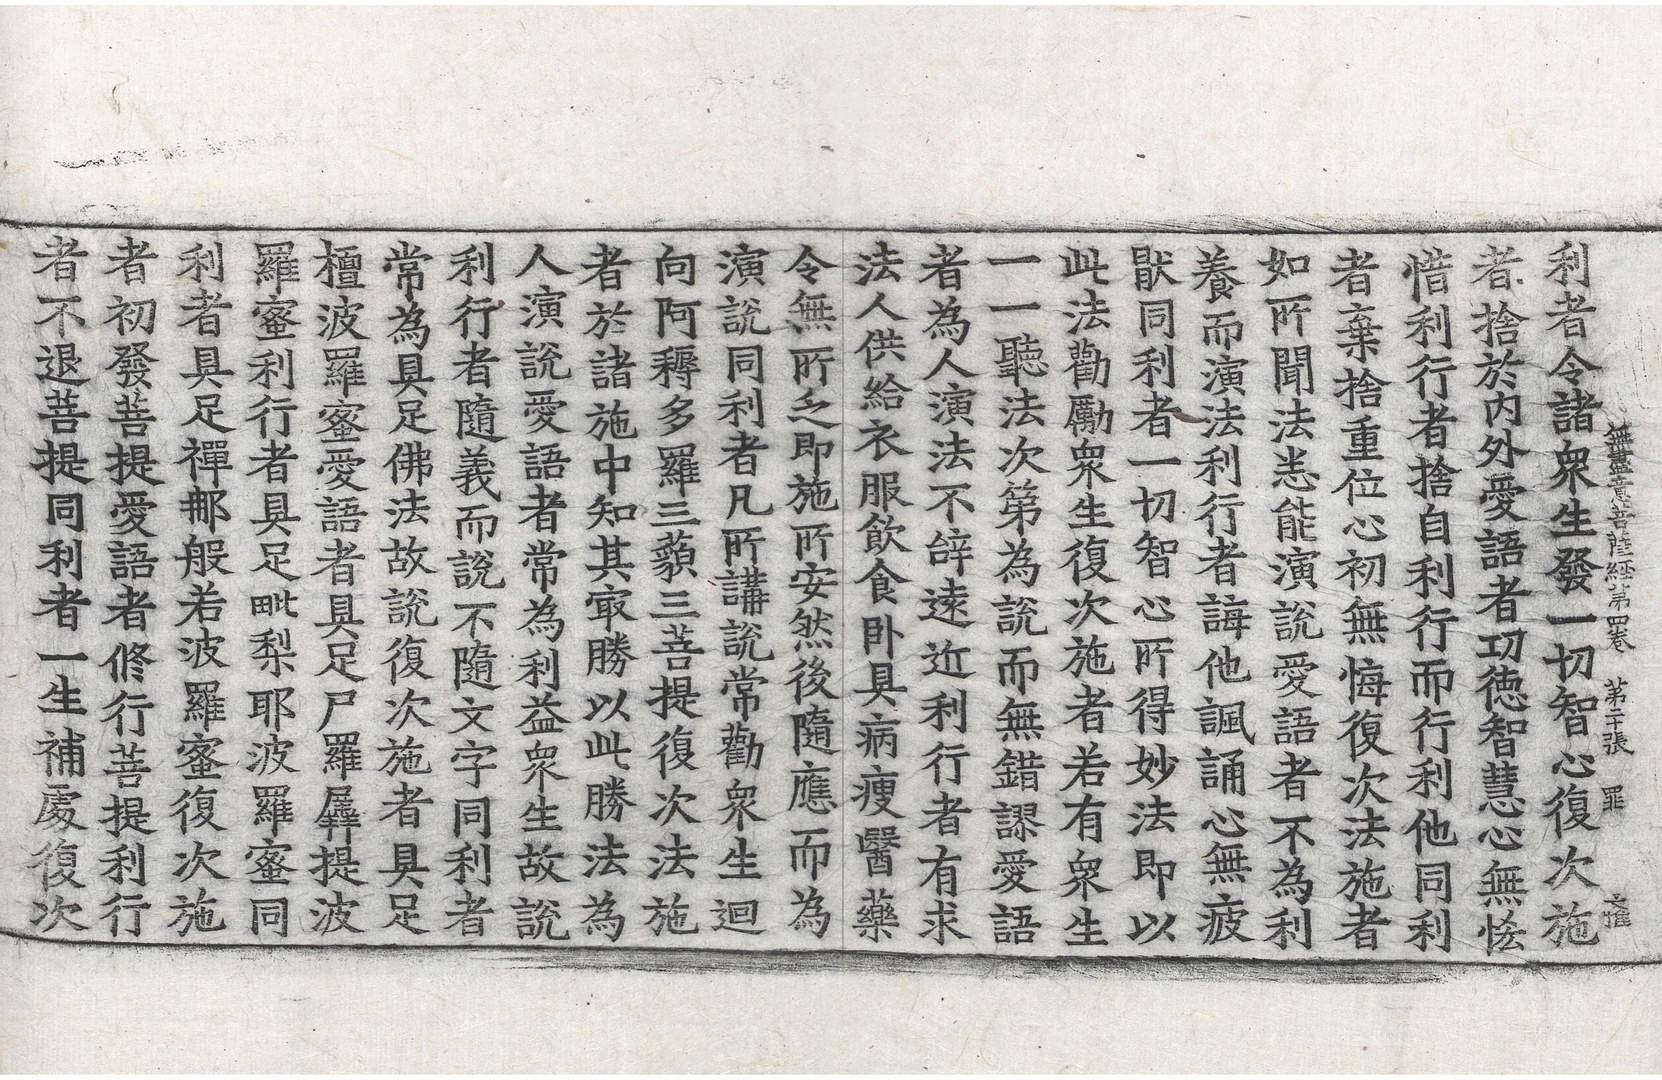 無盡意菩薩經第四卷　第二十張　罪
利者令諸衆生發一切智心復次施
者捨於內外愛語者功德智慧心無悋
惜利行者捨自利行而行利他同利
者棄捨重位心初無悔復次法施者
如所聞法恙能演說愛語者不為利
養而演法利行者誨他諷誦心無疲
猒同利者一切智心所得妙法即以
此法勸勵衆生復次施者若有衆生
一一聽法次第為說而無錯謬愛語
者為人演法不辝遠近利行者有求
法人供給衣服飲食卧具病瘦醫藥
令無所乏即施所安然後隨應而為
演說同利者凡所講說常勸衆生迴
向阿耨多羅三藐三菩提復次法施
者於諸施中知其㝡勝以此勝法為
人演說愛語者常為利益衆生故說
利行者隨義而說不隨文字同利者
常為具足佛法故說復次施者具足
檀波羅蜜愛語者具足尸羅羼提波
羅蜜利行者具足毗梨耶波羅蜜同
利者具足禪𨚗般若波羅蜜復次施
者初發菩提愛語者修行菩提利行
者不退菩提同利者一生補處復次